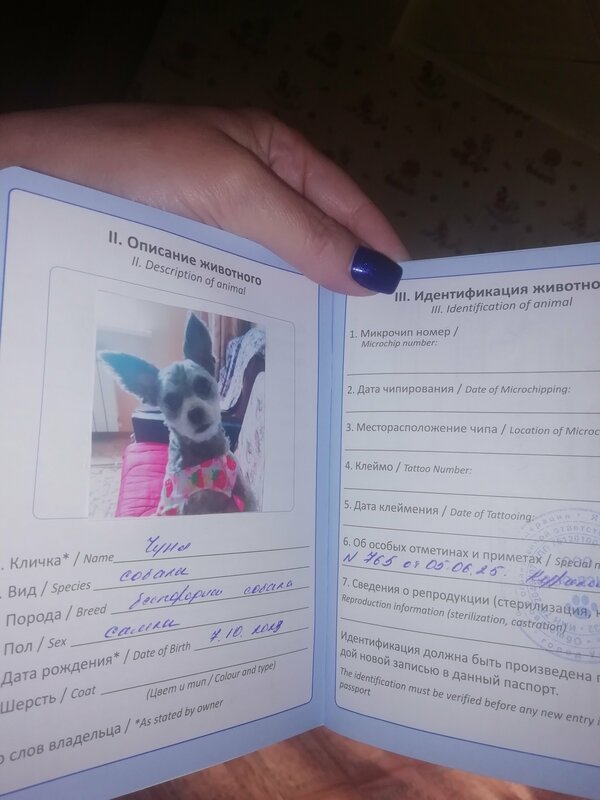 II. Описание животного
II. Description of animal
Кличка* / Name Чуня
Вид / Species собака
Порода / Breed беспородная собака
Пол / Sex самка
Дата рождения* / Date of Birth 7.10.
Шерсть / Coat
(Цвет и тип / Colour and type)
слов владельца / *As stated by owner
III. Идентификация животно
III. Identification of animal
1. Микрочип номер /
Microchip number:
2. Дата чипирования / Date of Microchipping:
3. Месторасположение чипа / Location of Microc
4. Клеймо / Tattoo Number:
5. Дата клеймения / Date of Tattooing:
6. Об особых отметинах и приметах / Special
N 765 от 05.06.25.
7. Сведения о репродукции (стерилизация,
Reproduction information (sterilization, castration)
Идентификация должна быть произведена
дой новой записью в данный паспорт.
The identification must be verified before any new entry
passport